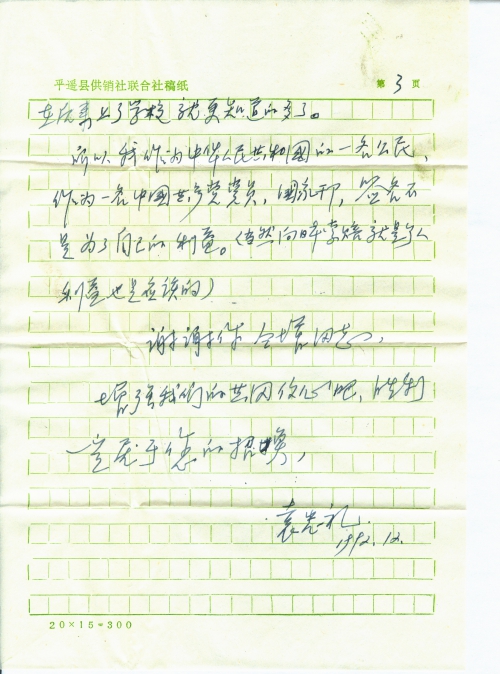 平遥县供销社联合社稿纸
第 3 页
上了学校就更知道的多了。
所以我作为中华人民共和国的一名公民，
作为一名中国共产党党员，签名不
是为了自己的利益。(当然向日本索赔就是个人
利益也是应该的)
谢谢你 同志，
增强我们的共同信心吧，胜利
一定属于您的招唤，
袁志礼
1992.12.
20×15=300